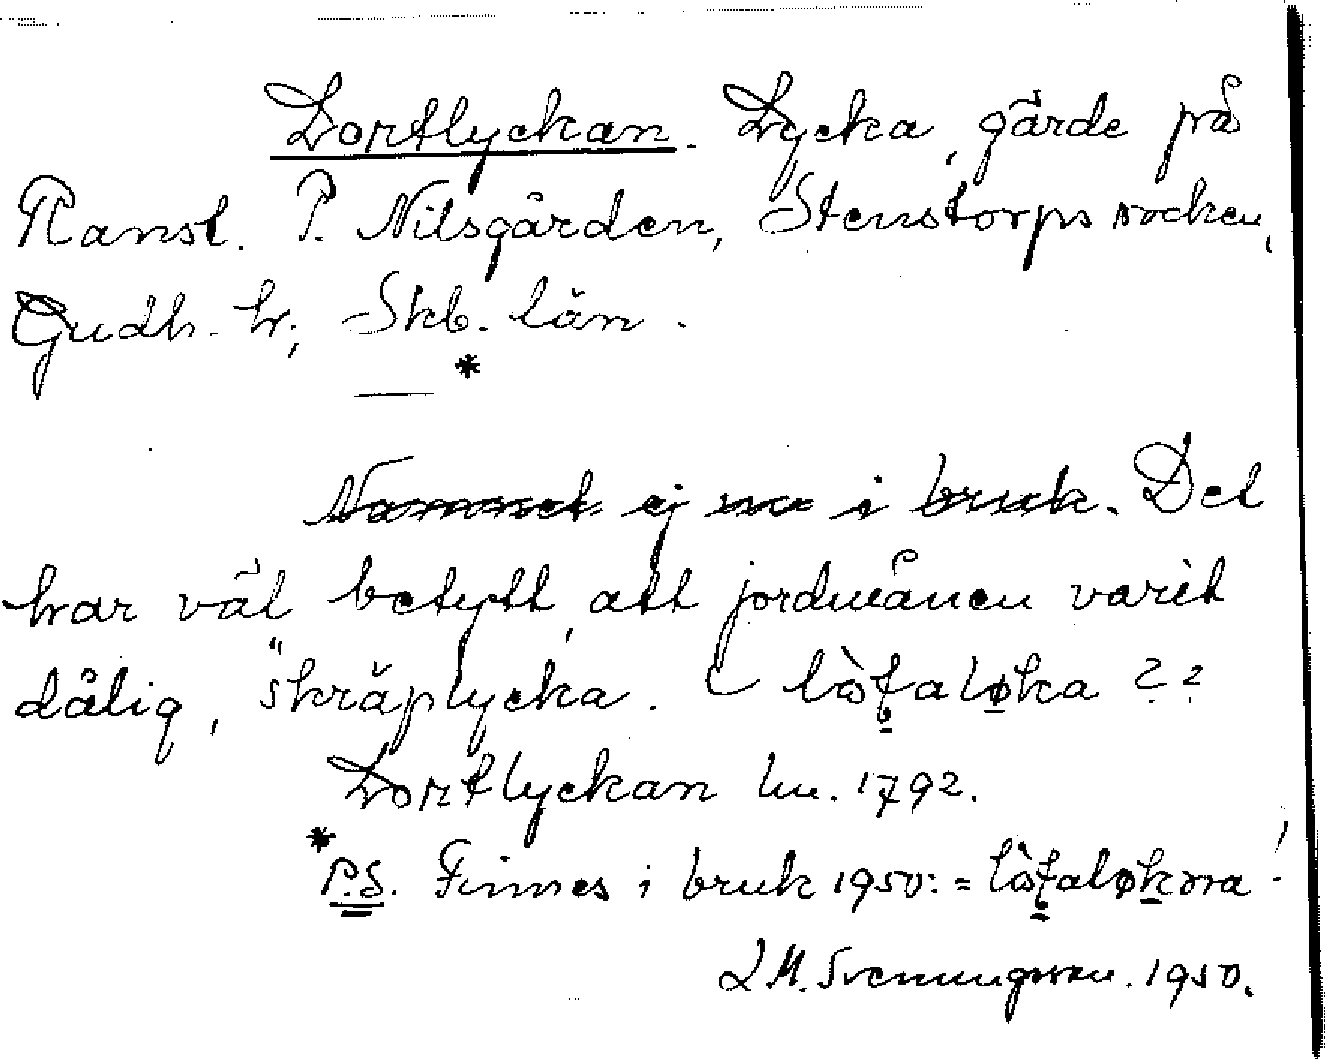 Lortlyckan. Lycka, gärde på
Ranst. P. Nilsgården, Stenstorps socken,
Gudh. hr, Skb. län.
*
Namnet ej nu i bruk. Det
har väl betytt, att jordmånen varit
dålig, "skräplycka. lòṭaløka ??
Lortlyckan lm. 1792.
*P.S. Finnes i bruk 1950: = lòṭaløkɷra
L M. Svenungsson. 1950.